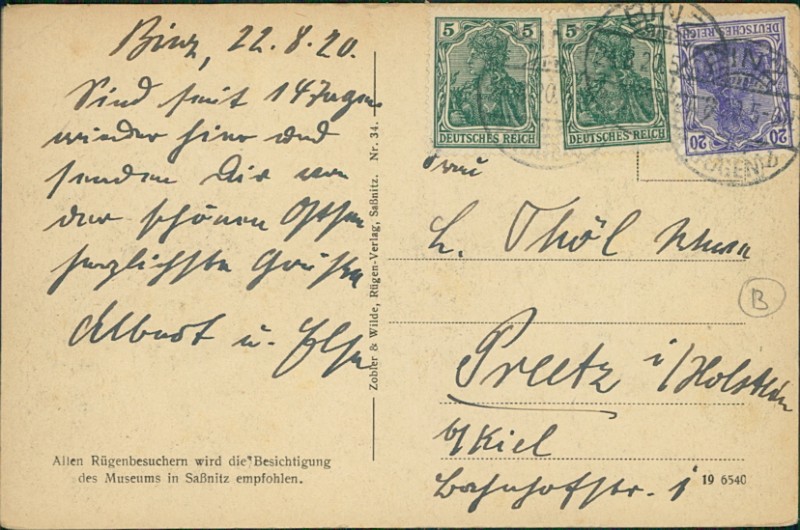 Binz, 22.8.20.
Sind seit 14 Tagen
wieder hier und
senden Dir von
der schönen Ostsee
herzlichste Grüße
Albert u. Else
Allen Rügenbesuchern wird die Besichtigung
des Museums in Saßnitz empfohlen.
Zobler & Wilde, Rügen-Verlag, Saßnitz. Nr. 34.
5 5
DEUTSCHES REICH
5
DEUTSCHES REICH
20 20
DEUTSCHES REICH
BINZ
(RÜGEN)
Frau
L. Thöl
B
Preetz i/Holstein
b/Kiel
Bahnhofstr. 1
19 6540